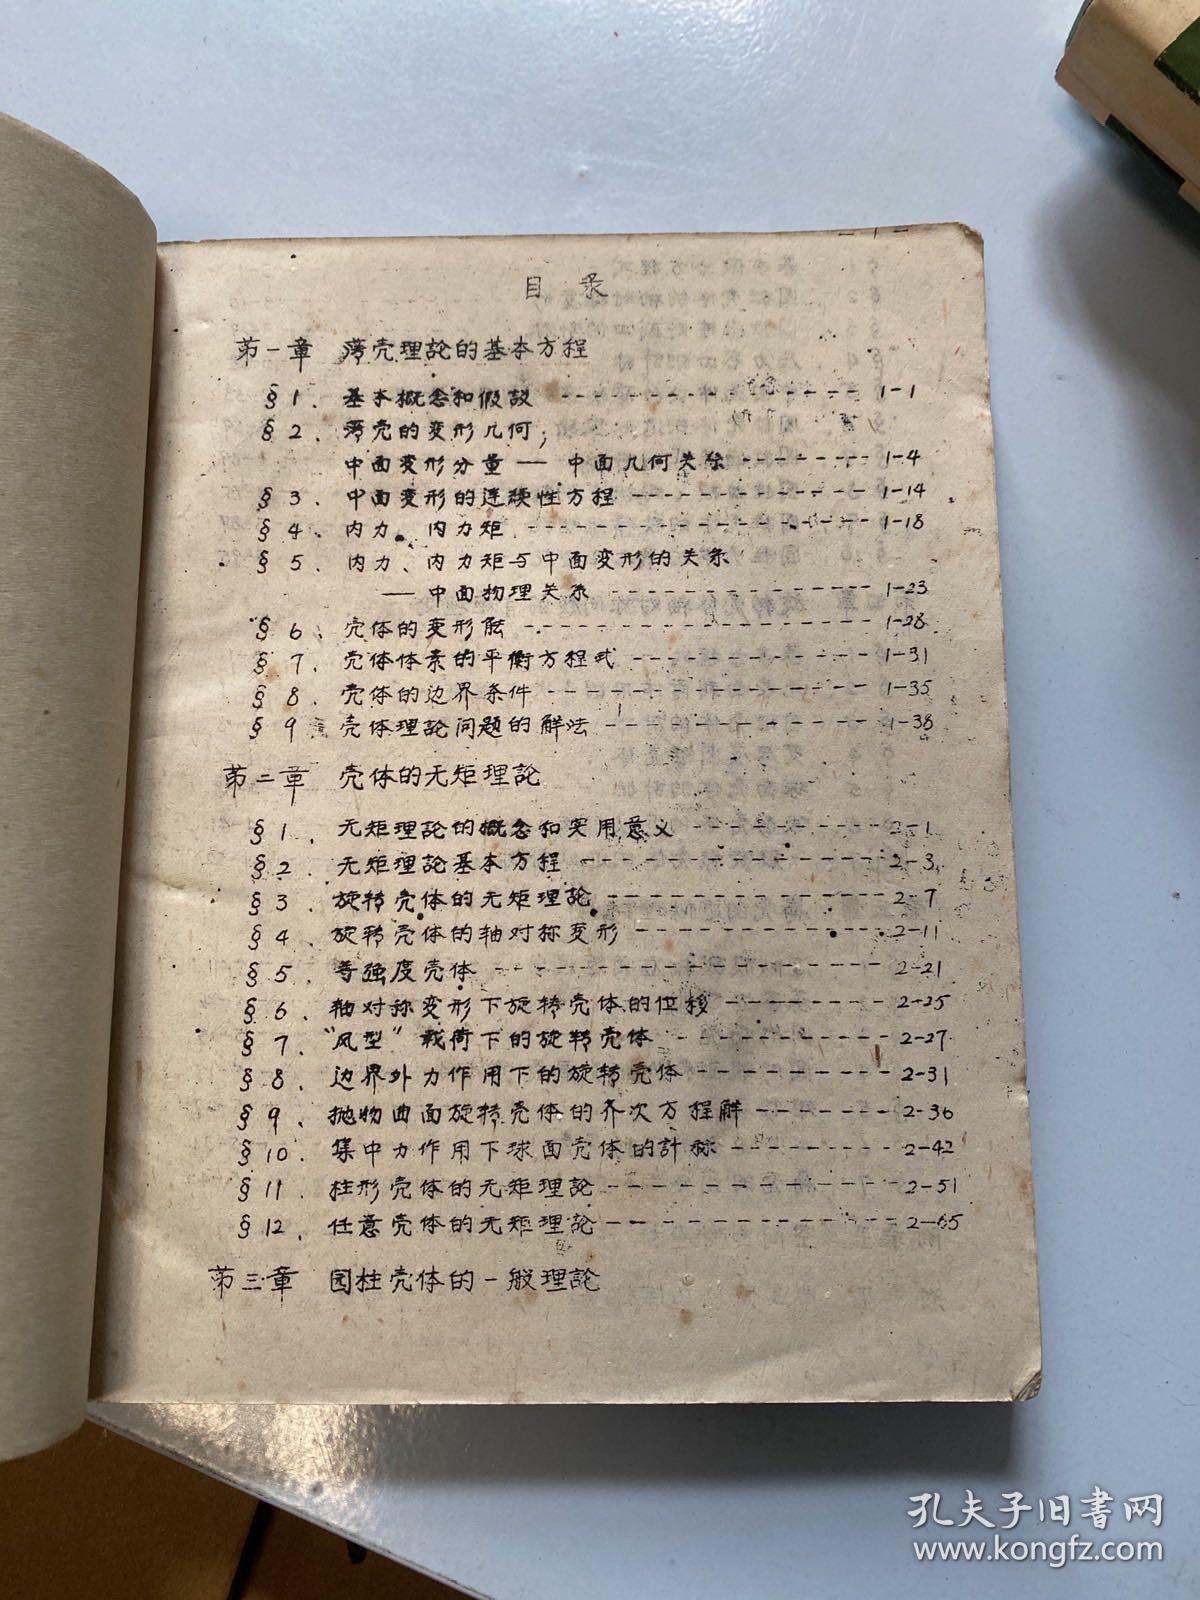 目录
第一章 薄壳理論的基本方程
§1. 基本概念和假設 1-1
§2. 薄壳的变形几何;
中面变形分量——中面几何关系 1-4
§3. 中面变形的連续性方程 1-14
§4. 内力、内力矩 1-18
§5. 内力、内力矩与中面变形的关系
——中面物理关系 1-23
§6. 壳体的变形能 1-28
§7. 壳体体素的平衡方程式 1-31
§8. 壳体的边界条件 1-35
§9. 壳体理論问题的解法 1-38
第二章 壳体的无矩理論
§1. 无矩理論的概念和实用意义 2-1
§2. 无矩理論基本方程 2-3
§3. 旋转壳体的无矩理論 2-7
§4. 旋转壳体的轴对称变形 2-11
§5. 等强度壳体 2-21
§6. 轴对称变形下旋转壳体的位移 2-25
§7. "风型"載荷下的旋转壳体 2-27
§8. 边界外力作用下的旋转壳体 2-31
§9. 抛物曲面旋转壳体的齐次方程解 2-36
§10. 集中力作用下球面壳体的計称 2-42
§11. 柱形壳体的无矩理論 2-51
§12. 任意壳体的无矩理論 2-65
第三章 园柱壳体的一般理論
孔夫子旧书网
www.kongfz.com